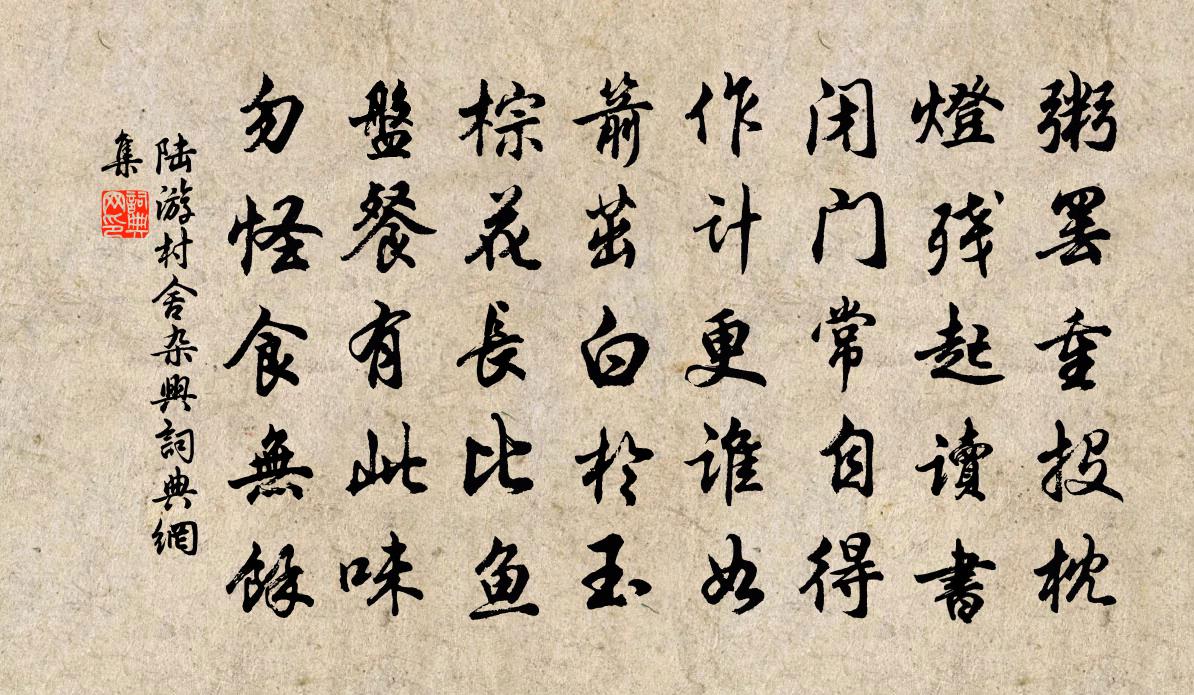 粥罢重投枕
燈残起讀書
闭门常自得
作计更谁如
箭茁白於玉
棕花長比鱼
盤餐有此味
勿怪食無餘
陆游村舍杂興詞典網
集
詞典
网印